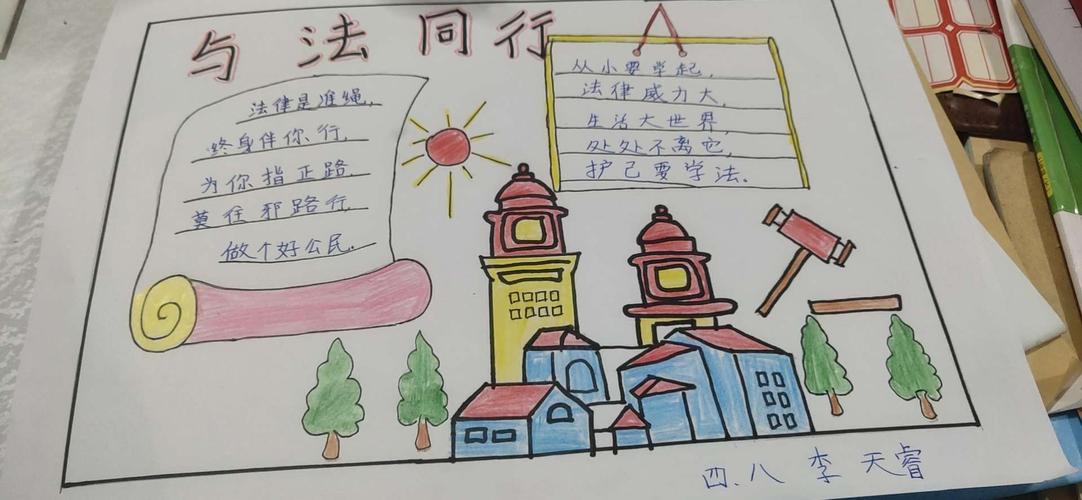 与法同行
法律是准绳,
终身伴你行,
为你指正路.
莫往邪路行,
做个好公民.
从小要学起,
法律威力大,
生活大世界,
处处不离它,
护己要学法.
四.八 李天睿